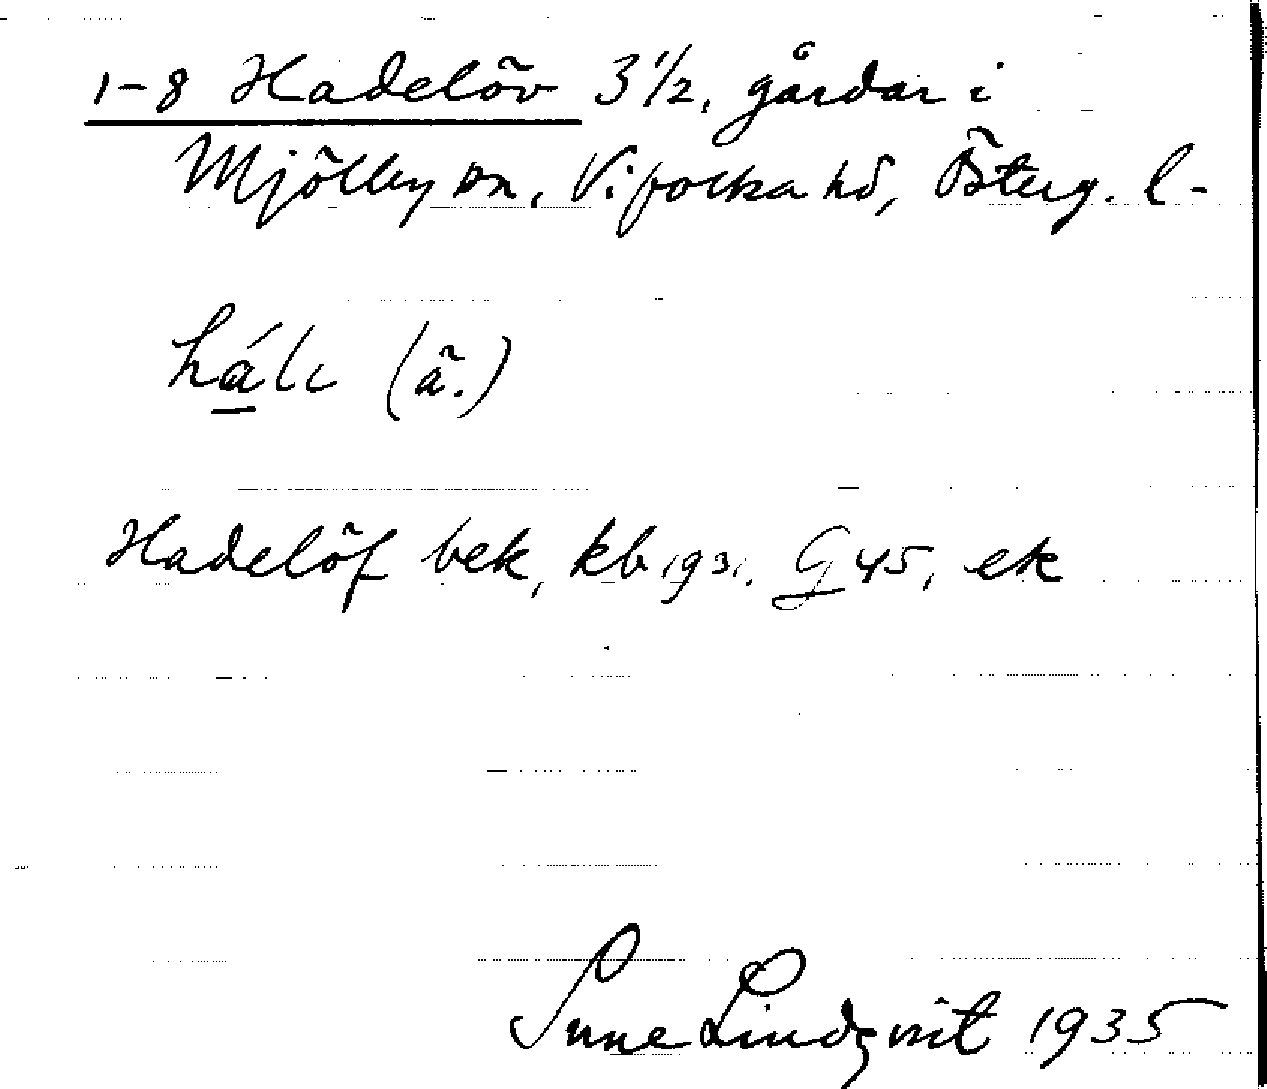 1-8 Hadelöv 3 1/2, gårdar i
Mjölby sn, Vifolka hd, Österg. l-
(ä.)
Hadelöf bek, kb 1931. G 45, ek
Sune Lindqvist 1935